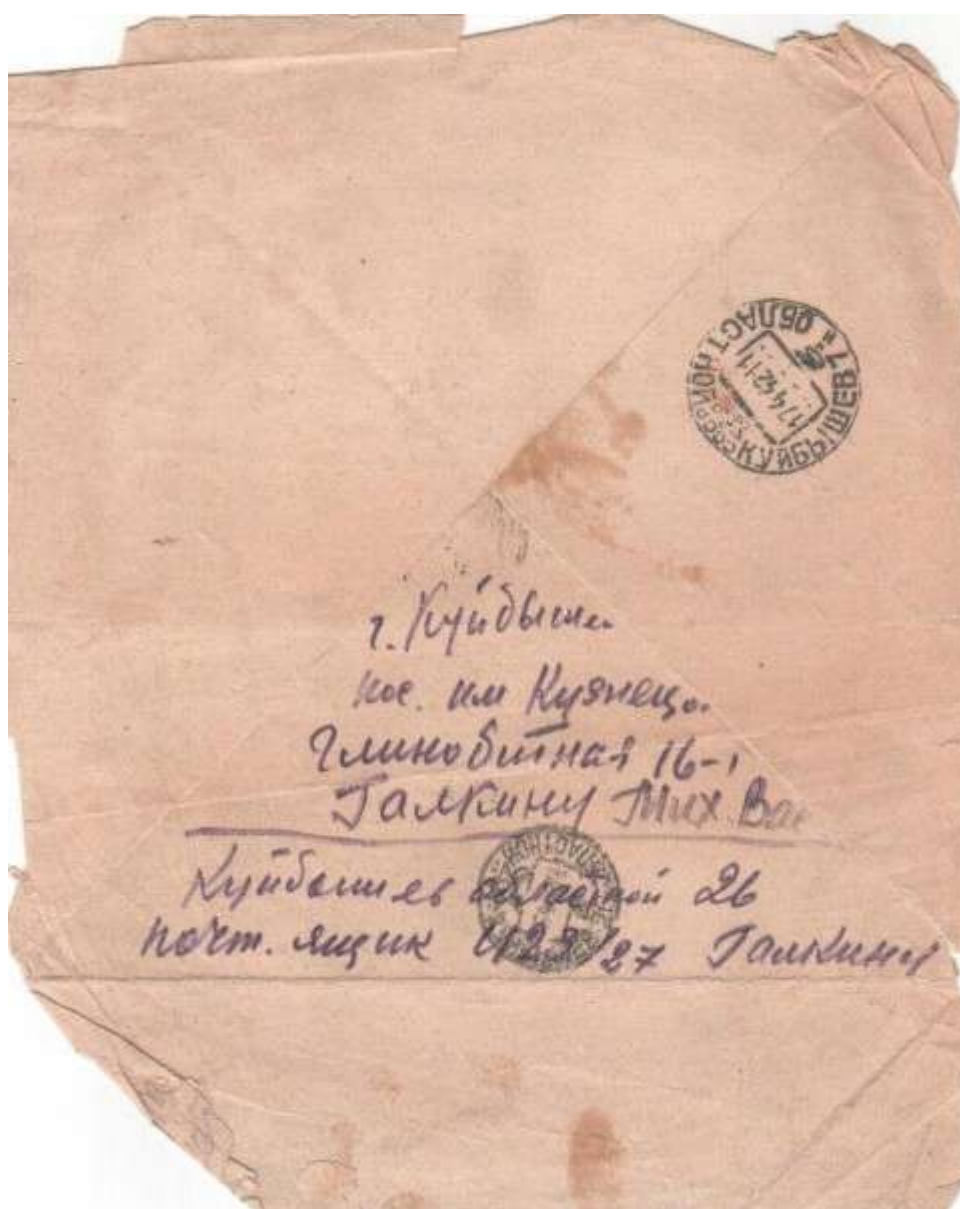 КУЙБЫШЕВ 7 ОБЛАСТНОЙ
17 4 42
г. Куйбыше
пос. им Кузнецо
Глинобитная 16-1
Галкину Мих. Вас
Куйбышев областной 26
почт. ящик 423/27 Галкину